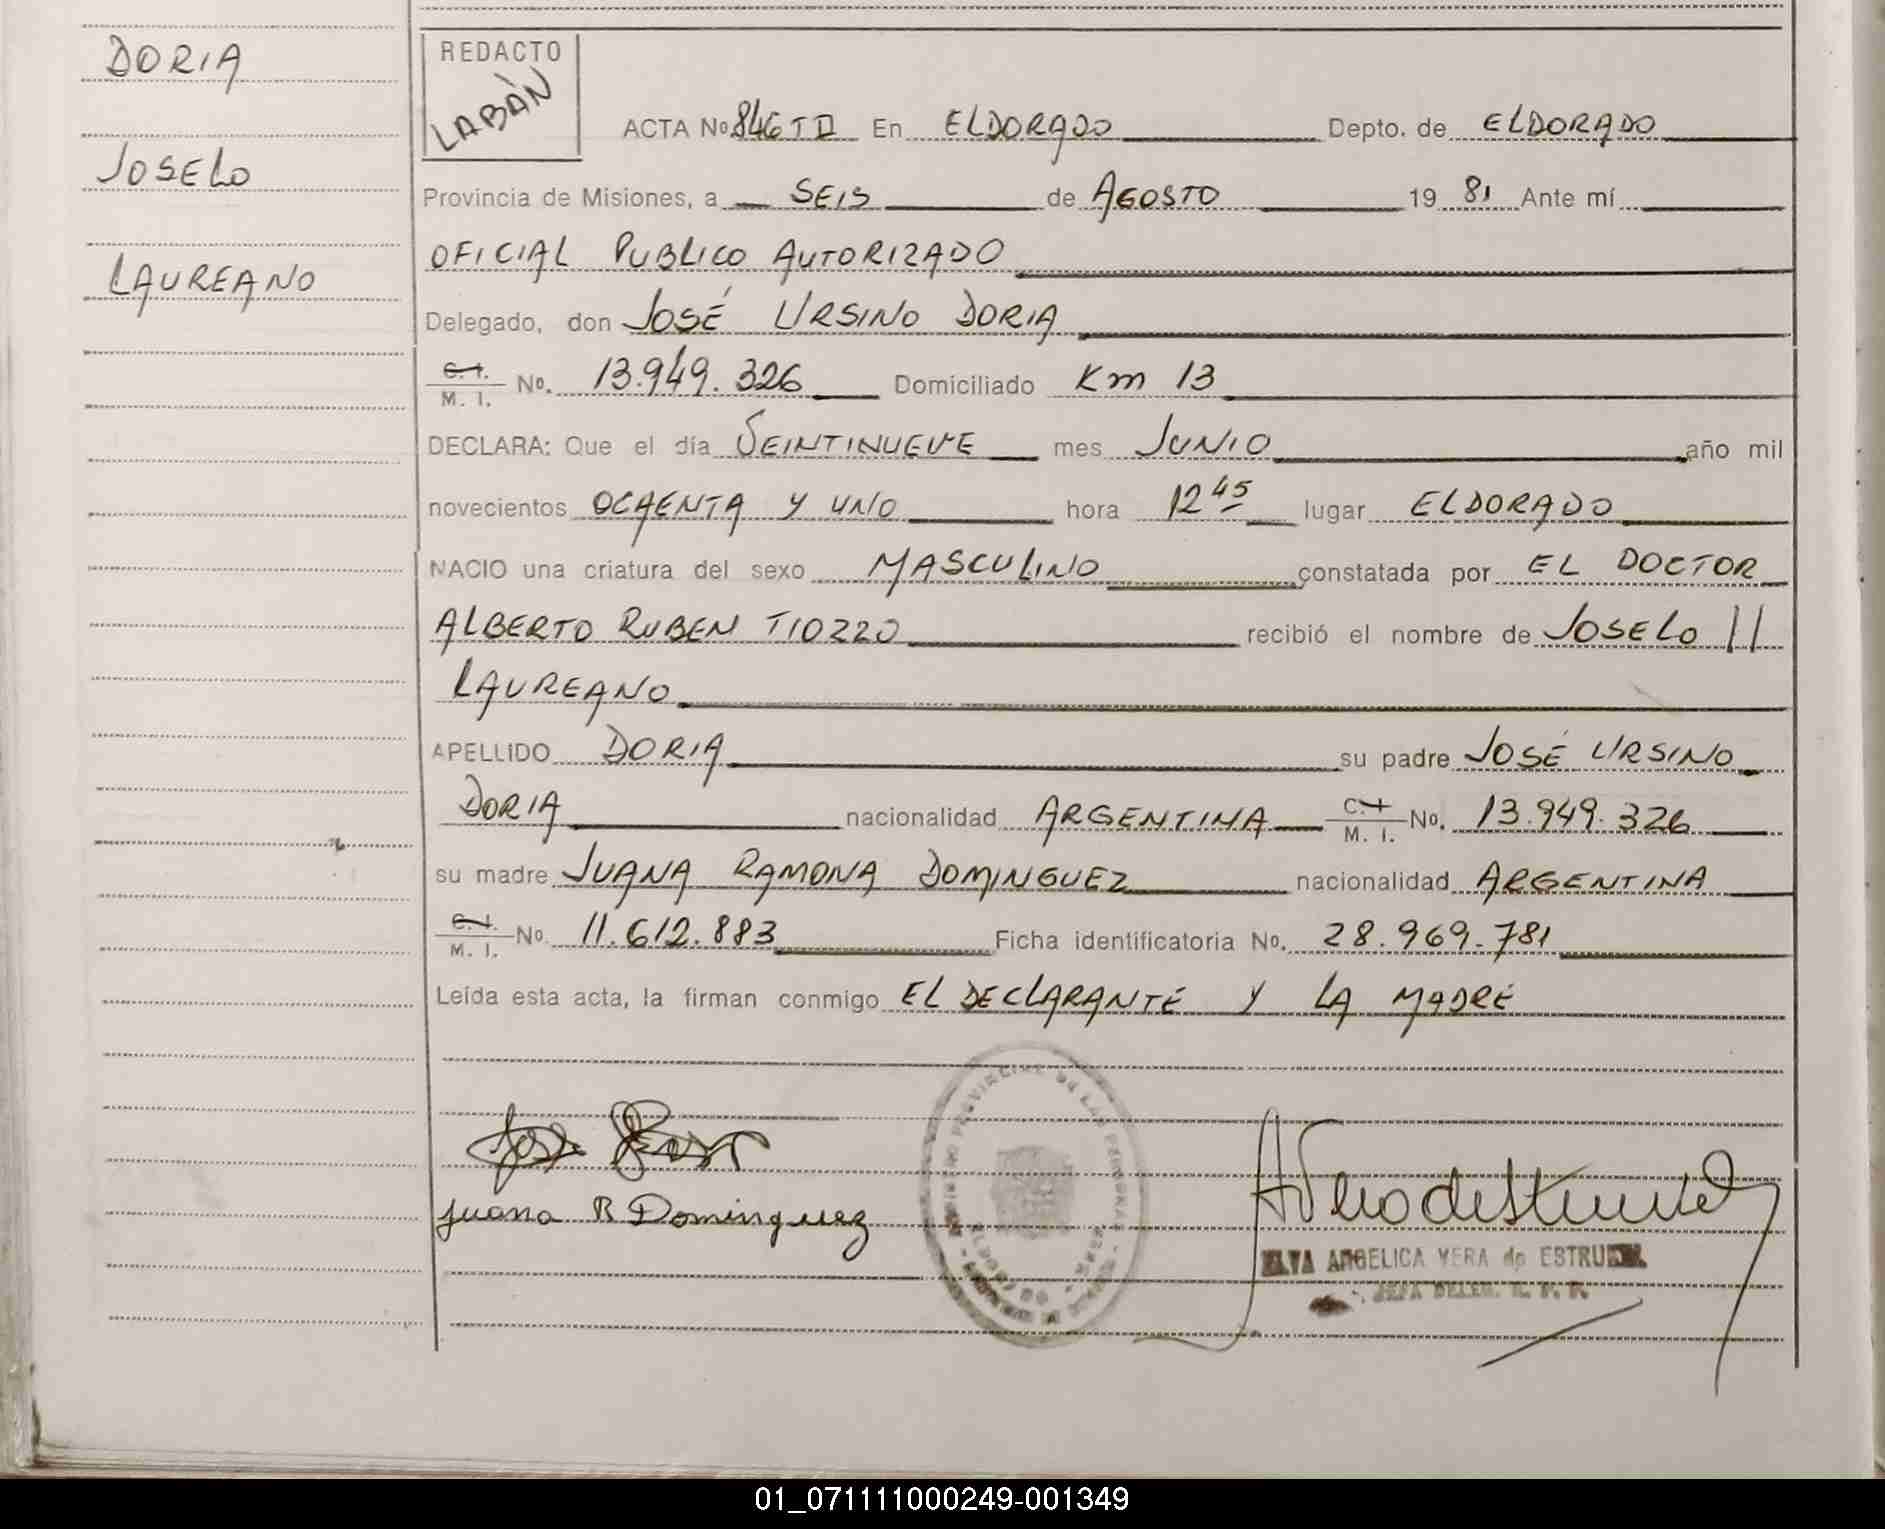 DORIA
JOSELO
LAUREANO
REDACTO
LABÁN
ACTA No. 846 T II En ELDORADO Depto. de ELDORADO
Provincia de Misiones, a SEIS de AGOSTO 19 81 Ante mí
OFICIAL PUBLICO AUTORIZADO
Delegado, don JOSÉ URSINO DORIA
C. I. M. I. No. 13.949.326 Domiciliado Km 13
DECLARA: Que el día VEINTINUEVE mes JUNIO año mil
novecientos OCHENTA Y UNO hora 12 45 lugar ELDORADO
NACIO una criatura del sexo MASCULINO constatada por EL DOCTOR
ALBERTO RUBEN TIOZZO recibió el nombre de JOSELO
LAUREANO
APELLIDO DORIA su padre JOSÉ URSINO
DORIA nacionalidad ARGENTINA C. I. M. I. No. 13.949.326
su madre JUANA RAMONA DOMINGUEZ nacionalidad ARGENTINA
C. I. M. I. No. 11.612.883 Ficha identificatoria No. 28.969.781
Leída esta acta, la firman conmigo EL DECLARANTE Y LA MADRE
Jose
Juana R Dominguez
ANGELICA VERA de
01_071111000249-001349